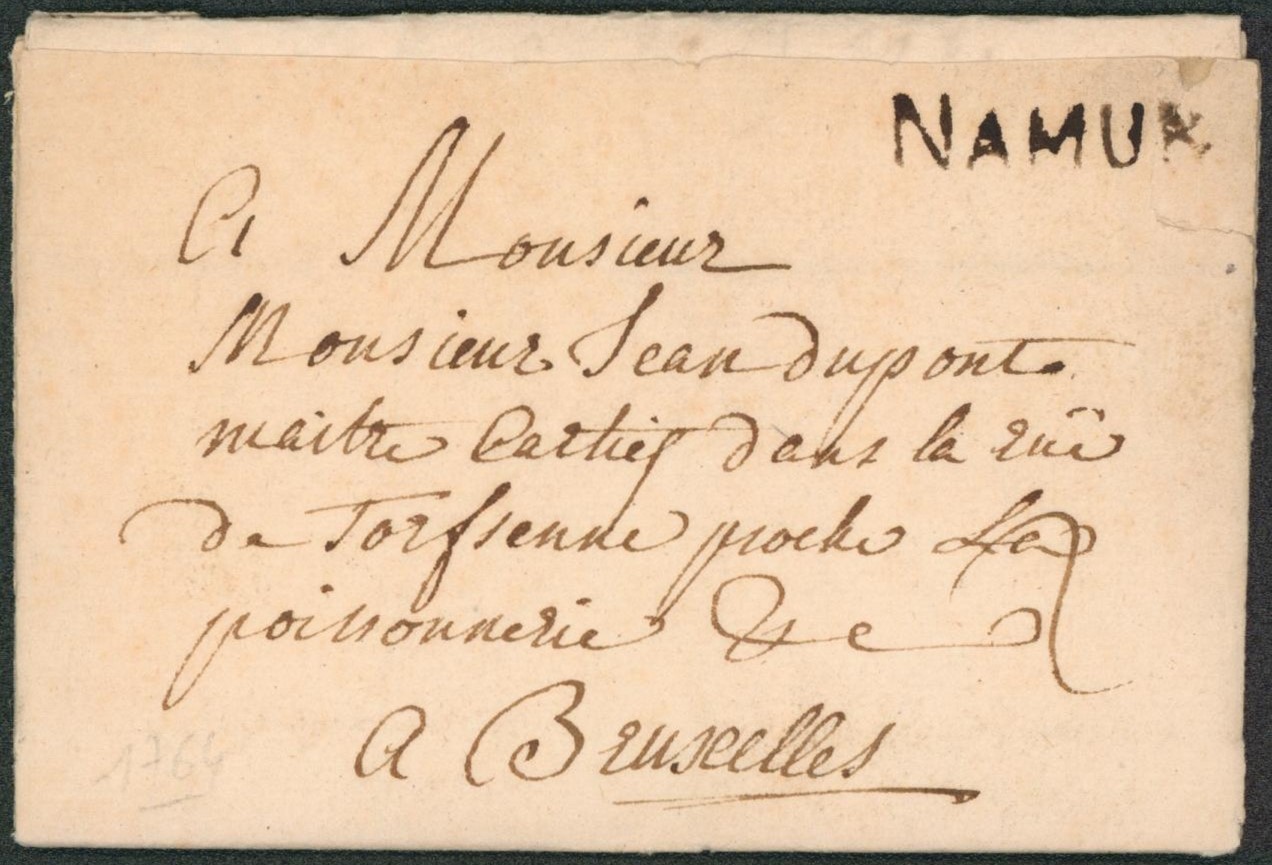 NAMUR
A Monsieur
Monsieur Jean dupont
maitre Cartier dans la ruë
de Torfsenne proche La
poissonnerie &c
A Bruxelles
1764